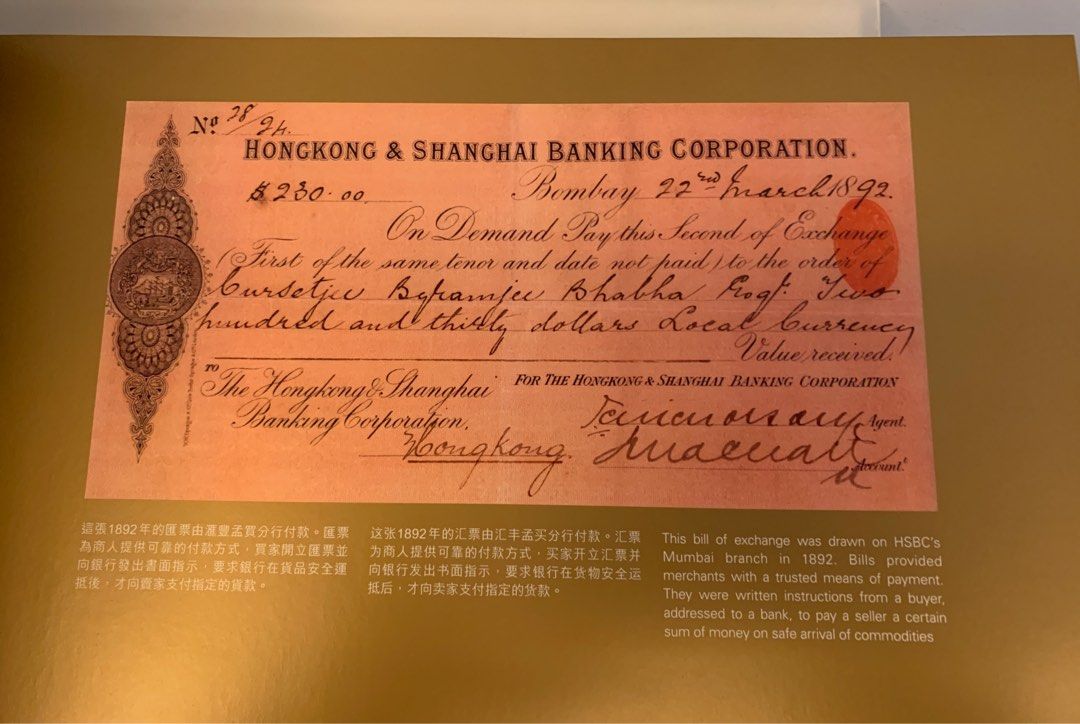 Nº 28/94.
HONGKONG & SHANGHAI BANKING CORPORATION.
$230.00.
Bombay 22nd March 1892.
On Demand Pay this Second of Exchange
(First of the same tenor and date not paid) to the order of
Cursetjee Byramjee Bhabha Esqr. Two
hundred and thirty dollars Local Currency
Value received.
TO
The Hongkong & Shanghai
Banking Corporation.
Hongkong.
FOR THE HONGKONG & SHANGHAI BANKING CORPORATION
Agent.
Account.t
這張1892年的匯票由滙豐孟買分行付款。匯票
為商人提供可靠的付款方式，買家開立匯票並
向銀行發出書面指示，要求銀行在貨品安全運
抵後，才向賣家支付指定的貨款。
这张1892年的汇票由汇丰孟买分行付款。汇票
为商人提供可靠的付款方式，买家开立汇票并
向银行发出书面指示，要求银行在货物安全运
抵后，才向卖家支付指定的货款。
This bill of exchange was drawn on HSBC's
Mumbai branch in 1892. Bills provided
merchants with a trusted means of payment.
They were written instructions from a buyer,
addressed to a bank, to pay a seller a certain
sum of money on safe arrival of commodities